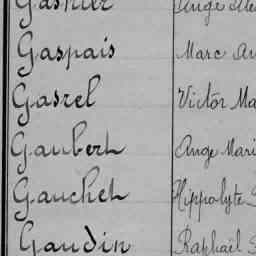 Gasnier Ange
Gaspais Marc
Gasrel Victor
Gaubert Ange
Gauchet Hippolyte
Gaudin Raphaël